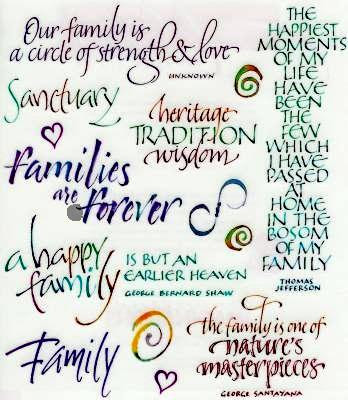 Our family is
a circle of strength & love
UNKNOWN
Sanctuary
heritage
TRADITION
wisdom
families
are forever
a happy
family
IS BUT AN
EARLIER HEAVEN
GEORGE BERNARD SHAW
Family
THE
HAPPIEST
MOMENTS
OF MY
LIFE
HAVE
BEEN
THE
FEW
WHICH
I HAVE
PASSED
AT
HOME
IN THE
BOSOM
OF MY
FAMILY
THOMAS
JEFFERSON
the family is one of
nature's
masterpieces
GEORGE SANTAYANA